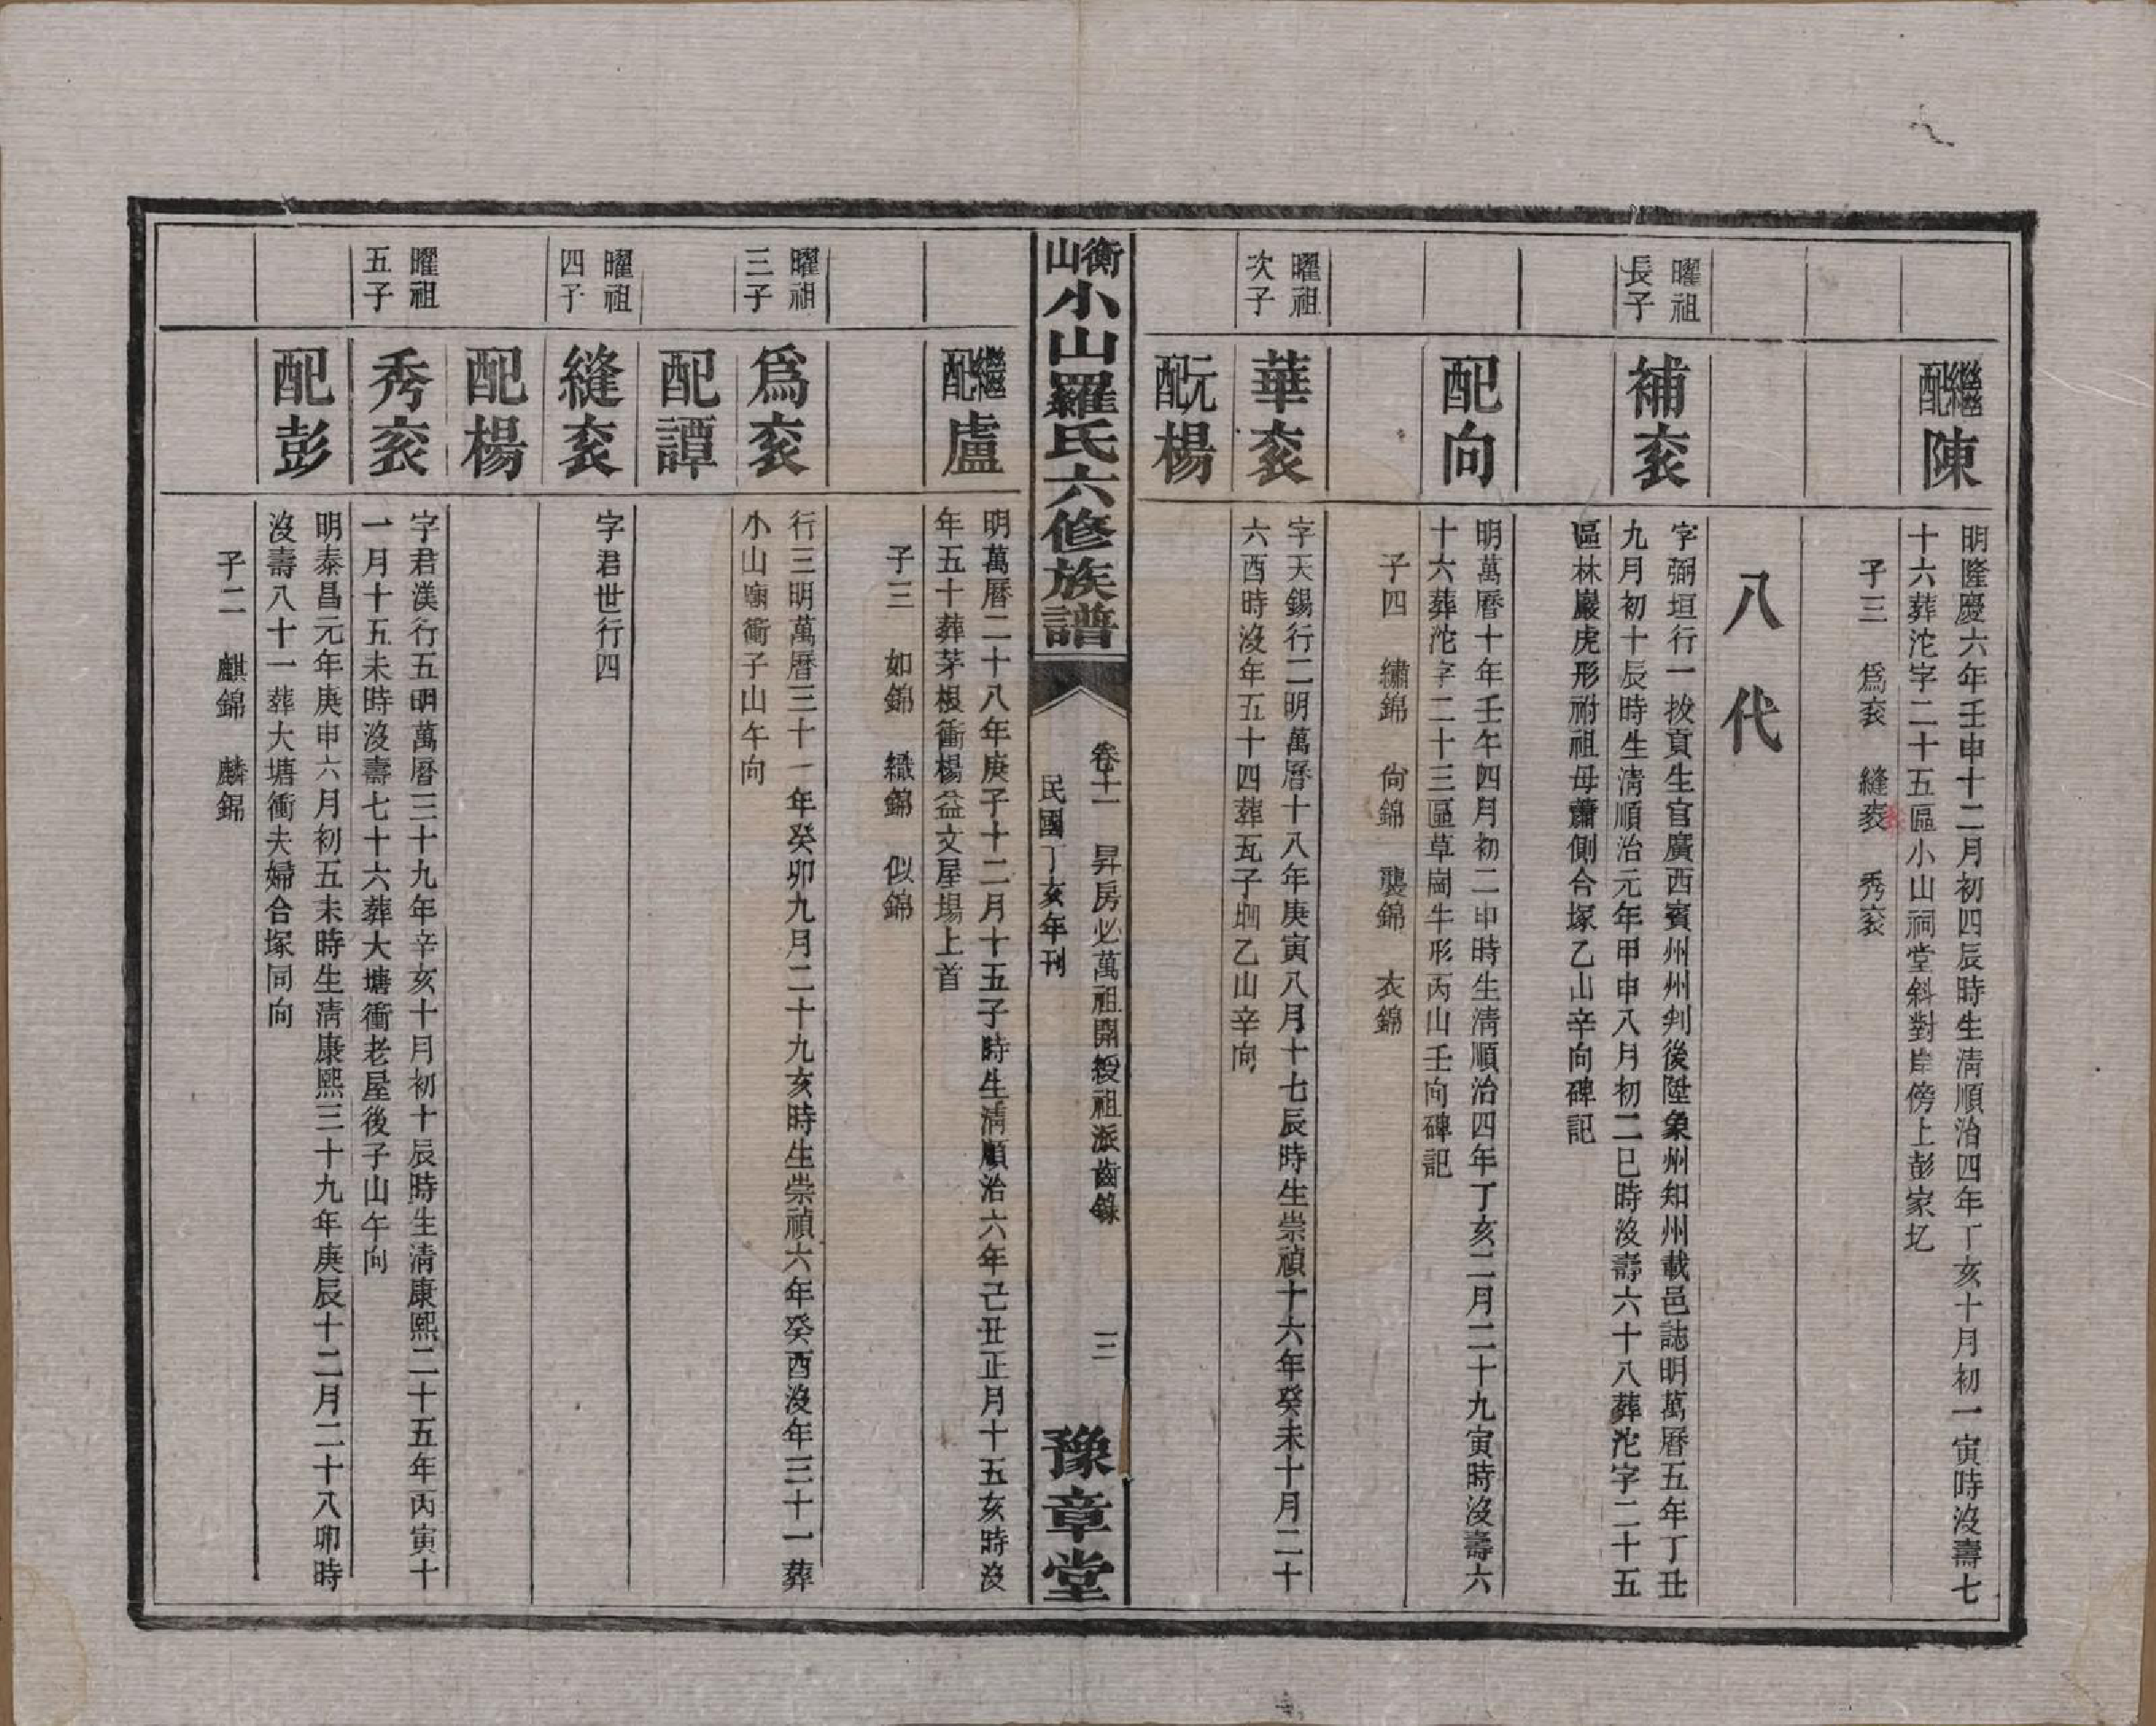 繼配陳
明隆慶六年壬申十二月初四辰時生清順治四年丁亥十月初一寅時沒壽七
十六葬沱字二十五區小山祠堂斜對岸傍上彭家圪
子三 爲袞 縫袞 秀袞
八代
曜祖長子
補袞
字弼垣行一拔貢生官廣西賓州州判後陞象州知州載邑誌明萬曆五年丁丑
九月初十辰時生清順治元年甲申八月初二巳時沒壽六十八葬沱字二十五
區林巖虎形祔祖母蕭側合塚乙山辛向碑記
配向
明萬曆十年壬午四月初二申時生清順治四年丁亥二月二十九寅時沒壽六
十六葬沱字二十三區草崗牛形丙山壬向碑記
子四 繡錦 尙錦 襲錦 衣錦
曜祖次子
華袞
字天錫行二明萬曆十八年庚寅八月十七辰時生崇禎十六年癸未十月二十
六酉時沒年五十四葬瓦子坰乙山辛向
元配楊
衡山小山羅氏六修族譜
卷十二 昇房必萬祖開綬祖派齒錄 三
民國丁亥年刊
豫章堂
繼配盧
明萬曆二十八年庚子十二月十五子時生清順治六年己丑正月十五亥時沒
年五十葬茅根衝楊益文屋場上首
子三 如錦 織錦 似錦
曜祖三子
爲袞
行三明萬曆三十一年癸卯九月二十九亥時生崇禎六年癸酉沒年三十一葬
小山廟衝子山午向
配譚
曜祖四子
縫袞
字君世行四
配楊
曜祖五子
秀袞
字君渼行五明萬曆三十九年辛亥十月初十辰時生清康熙二十五年丙寅十
一月十五未時沒壽七十六葬大塘衝老屋後子山午向
配彭
明泰昌元年庚申六月初五未時生清康熙三十九年庚辰十二月二十八卯時
沒壽八十一葬大塘衝夫婦合塚同向
子二 麒錦 麟錦